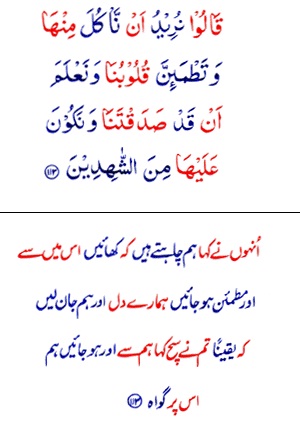 قَالُوْا نُرِيْدُ اَنْ نَّاْكُلَ مِنْهَا
وَ تَطْمَئِنَّ قُلُوْبُنَا وَ نَعْلَمَ
اَنْ قَدْ صَدَقْتَنَا وَ نَكُوْنَ
عَلَيْهَا مِنَ الشّٰهِدِيْنَ ﴿۱۱۳﴾
اُنہوں نے کہا ہم چاہتے ہیں کہ کھائیں اس میں سے
اور مطمئن ہو جائیں ہمارے دل اور ہم جان لیں
کہ یقیناً تم نے سچ کہا ہم سے اور ہو جائیں ہم
اس پر گواہ ﴿۱۱۳﴾